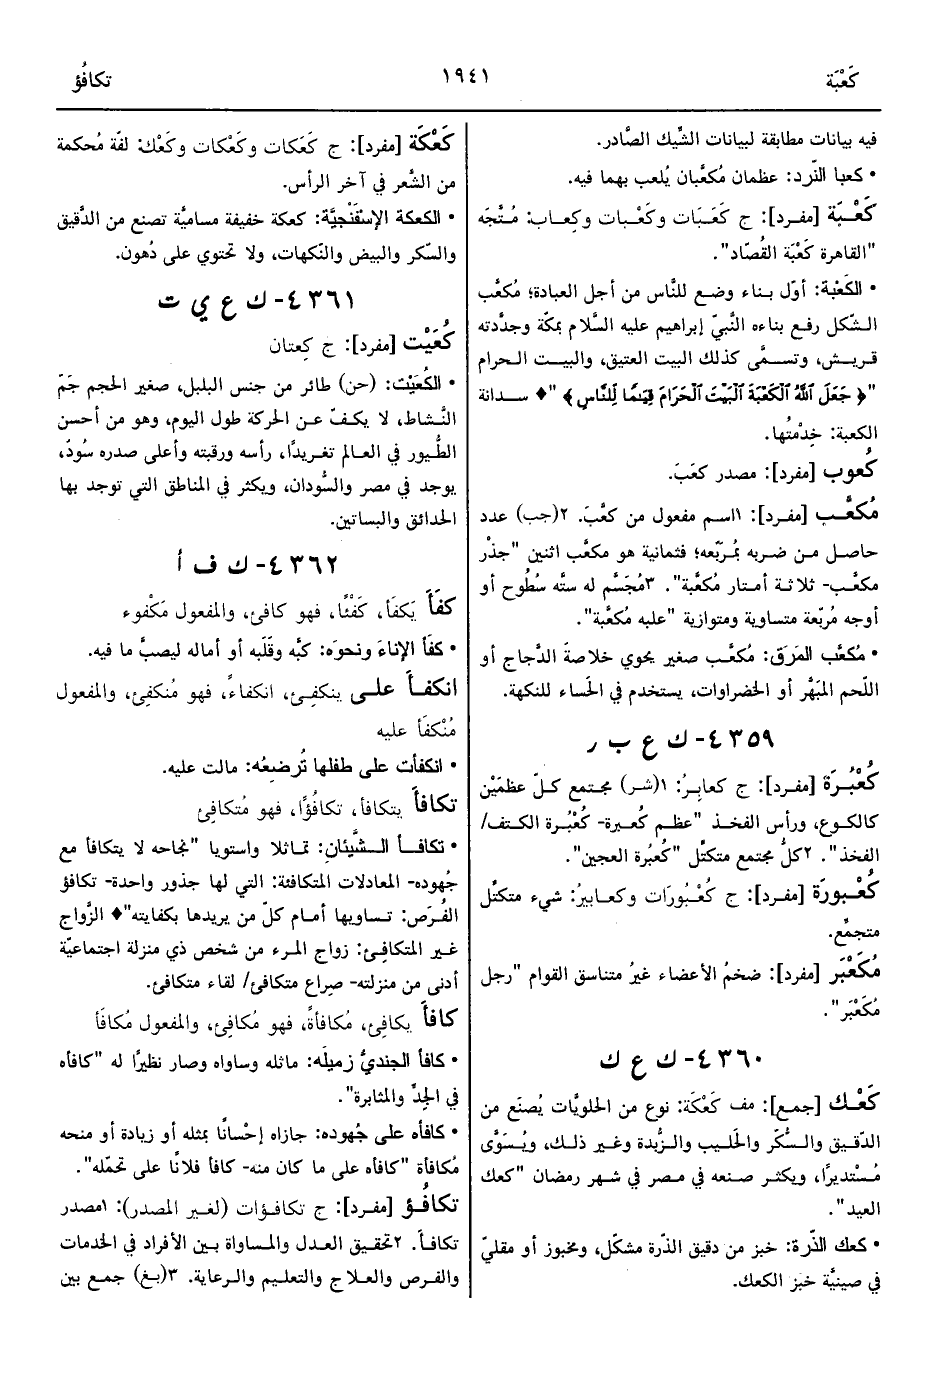 كَعْبَة
١٩٤١
تكافُؤ
فيه بيانات مطابقة لبيانات الشِّيك الصَّادر.
• كعبا النَّرد: عظمان مُكعَّبان يُلعب بهما فيه.
كَعْبَة [مفرد]: ج كَعَبَات وكَعْبات وكِعاب: مُتَّجَه
"القاهرة كَعْبَة القُصّاد".
• الكَعْبة: أوّل بناء وضع للنَّاس من أجل العبادة؛ مُكعَّب
الشّكل رفع بناءه النَّبيّ إبراهيم عليه السَّلام بمكّة وجدَّدته
قريش، وتسمَّى كذلك البيت العتيق، والبيت الحرام
"﴿ جَعَلَ اللهُ الْكَعْبَةَ الْبَيْتَ الْحَرَامَ قِيَامًا لِلنَّاسِ ﴾" ♦ سدانة
الكعبة: خِدْمتُها.
كُعوب [مفرد]: مصدر كعَبَ.
مُكعَّب [مفرد]: ١اسم مفعول من كعَّبَ. ٢(جب) عدد
حاصل من ضربه بمُربّعه؛ فثمانية هو مكعَّب اثنين "جذْر
مكعَّب- ثلاثة أمتار مُكعَّبة". ٣مُجَسَّم له ستَّه سُطُوح أو
أوجه مُربّعة متساوية ومتوازية "علبه مُكعَّبة".
• مُكعَّب المَرَق: مُكعَّب صغير يحوي خلاصة الدَّجاج أو
اللّحم المبَهَّر أو الخضراوات، يستخدم في الحَساء للنكهة.
٤٣٥٩- ك ع ب ر
كُعْبُرَة [مفرد]: ج كعابِرُ: ١(شر) مجتمع كلّ عظمَيْن
كالكوع، ورأس الفخذ "عظم كُعبرة- كُعْبُرة الكتف/
الفخذ". ٢كلُّ مجتمع متكتِّل "كُعبُرة العجين".
كُعْبورَة [مفرد]: ج كُعْبُورَات وكعابيرُ: شيء متكتِّل
متجمِّع.
مُكَعْبَر [مفرد]: ضخمُ الأعضاء غيرُ متناسق القوام "رجل
مُكَعْبَر".
٤٣٦٠- ك ع ك
كَعْك [جمع]: مف كَعْكَة: نوع من الحلويَّات يُصنَع من
الدّقيق والسُّكّر والحَليب والزُّبدة وغير ذلك، ويُسَوَّى
مُسْتديرًا، ويكثر صنعه في مصر في شهر رمضان "كعك
العيد".
• كعك الذّرة: خبز من دقيق الذّرة مشكّل، ومخبوز أو مقليّ
في صينيَّة خبز الكعك.
كَعْكَة [مفرد]: ج كَعَكات وكَعْكات وكَعْك: لفّة مُحكمة
من الشَّعر في آخر الرأس.
• الكعكة الإسْفَنْجيَّة: كعكة خفيفة مساميَّة تصنع من الدَّقيق
والسّكر والبيض والنّكهات، ولا تحتوي على دُهون.
٤٣٦١- ك ع ي ت
كُعَيْت [مفرد]: ج كِعتان
• الكُعَيْت: (حن) طائر من جنس البلبل، صغير الحجم جَمّ
النَّشاط، لا يكفّ عن الحركة طول اليوم، وهو من أحسن
الطُّيور في العالم تغريدًا، رأسه ورقبته وأعلى صدره سُودٌ،
يوجد في مصر والسُّودان، ويكثر في المناطق التي توجد بها
الحدائق والبساتين.
٤٣٦٢- ك ف أ
كفَأَ يَكفَأ، كَفْئًا، فهو كافئ، والمفعول مَكْفوء
• كفَأ الإناءَ ونحوَه: كبَّه وقلَبه أو أماله ليصبَّ ما فيه.
انكفأَ على ينكفِئ، انكفاءً، فهو مُنكفِئ، والمفعول
مُنْكفَأ عليه
• انكفأت على طفلها تُرضِعُه: مالت عليه.
تكافأَ يتكافأ، تكافُؤًا، فهو مُتكافِئ
• تكافأ الشَّيئان: تماثلا واستويا "نجاحه لا يتكافأ مع
جُهوده- المعادلات المتكافئة: التي لها جذور واحدة- تكافؤ
الفُرَص: تساويها أمام كلّ من يريدها بكفايته" ♦ الزَّواج
غير المتكافِئ: زواج المرء من شخص ذي منزلة اجتماعيّة
أدنى من منزلته- صِراع متكافئ/ لقاء متكافئ.
كافأَ يكافِئ، مُكافأةً، فهو مُكافِئ، والمفعول مُكافَأ
• كافأ الجنديُّ زميلَه: ماثله وساواه وصار نظيرًا له "كافأه
في الجِدِّ والمثابرة".
• كافأه على جُهوده: جازاه إحْسانًا بمثله أو زيادة أو منحه
مُكافأة "كافأه على ما كان منه- كافأ فلانًا على تحمّله".
تكافُؤ [مفرد]: ج تكافؤات (لغير المصدر): ١مصدر
تكافأَ. ٢تحقيق العدل والمساواة بين الأفراد في الخدمات
والفرص والعلاج والتعليم والرعاية. ٣(بغ) جمع بين